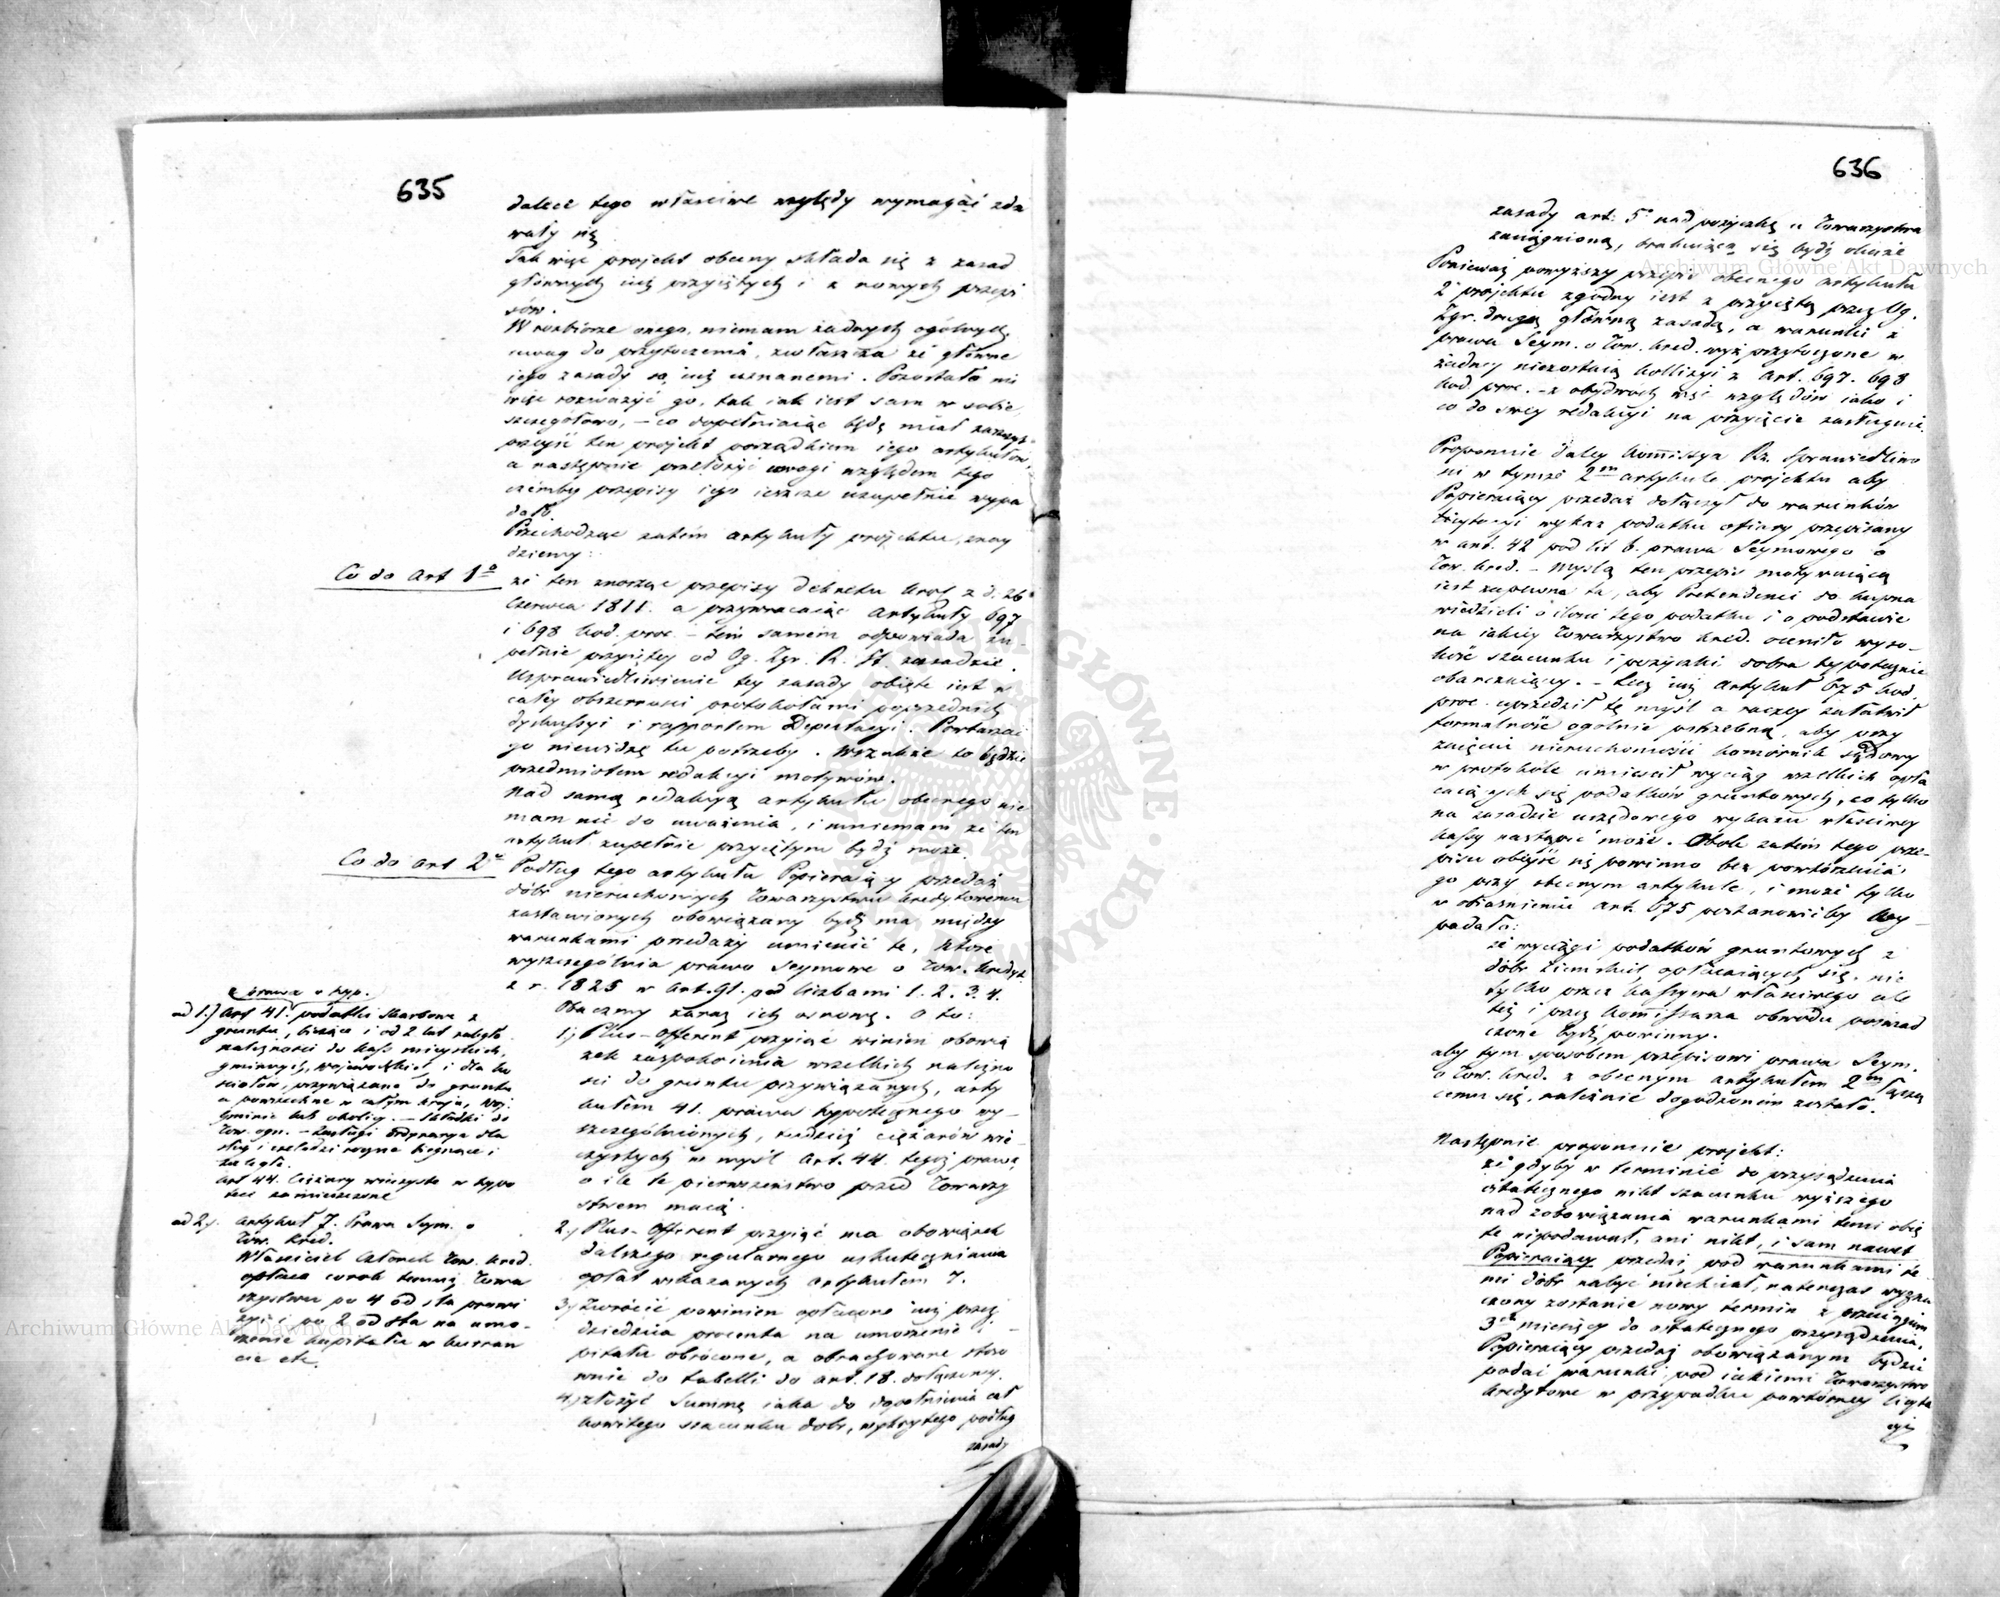 635
dalece tego właściwe względy wymagać zda
wały się
Tak więc projekt obecny składa się z zasad
głównych już przyiętych i z nowych przepi
sów.
W rozbiorze onego, niemam żadnych ogólnych
uwag do przytoczenia, zwłaszcza że główne
iego zasady są iuż uznanemi. Pozostało mi
więc rozważyć go, tak iak iest sam w sobie
szczegółowo, – co dopełniaiąc będę miał zaszczyt
przeyść ten projekt porządkiem iego artykułów,
a następnie przełożyć uwagi względem tego
czémby przepisy iego ieszcze uzupełnić wypa
dało
Przechodząc zatém artykuły projektu, znay
dziemy:
Co do Art 1o
że ten znosząc przepisy Dekretu Król. z d. 26
Czerwca 1811. a przywracaiąc Artykuły 697
i 698 kod. proc. – tém samém odpowiada zu-
pełnie przyiętey od Og. Zgr. R. St. zasadzie.
Usprawiedliwienie tey zasady obięte iest w
całey obszerności protokołami poprzednich
dyskussyi i rapportem Deputacyi. Powtarzać
go niewidzę tu potrzeby. Wszakże to będzie
przedmiotem redakcyi motywów.
Nad samą redakcyą artykułu obecnego nie
mam nic do uważenia, i mniemam że ten
artykuł zupełnie przyiętym bydź może.
Co do Art 2o
Podług tego artykułu Popieraiący przedaż
dóbr nieruchomych Towarzystwu kredytowemu
zastawionych obowiązany bydź ma między
warunkami przedaży umieścić te, które
wyszczególnia prawo Seymowe o Tow. kredyt.
z r. 1825 w Art. 91. pod liczbami 1. 2. 3. 4.
Obaczmy zaraz ich osnowę. Oto:
1.) Plus-Offerent przyiąć winien obowią
zek zaspokoienia wszelkich należno
ści do gruntu przywiązanych, arty
kułem 41. prawa hypotecznego wy-
szczególnionych, tudzież ciężarów wie
czystych w myśl Art. 44. tegoż prawa,
o ile te pierwszeństwo przed Towarzy
stwem maią.
2.) Plus-Offerent przyiąć ma obowiązek
dalszego regularnego uskuteczniania
opłat wskazanych Artykułem 7.
3.) Zwrócić powinien opłacone iuż przez
dziedzica procenta na umorzenie
pitału obrócone, a obrachowane stoso
wnie do tabelli do art. 18. dołączoney.
4.) złożyć Summę iaka do dopełnienia cał
kowitego szacunku dóbr, wykrytego podług
zasady
z prawa o hyp.
ad 1.) Art 41. podatki Skarbowe z
gruntu, bieżące i od 2 lat zaległe
należności do kass mieyskich,
gminnych, wojewódzkich, i dla ko
ściołów, przywiązane do gruntu
a powszechne w całym kraju, woj.
gminie lub okolicy. – Składki do
Tow. ogn. – Zasługi Ordynarya dla
sług i czeladzi roczne bieżące i
zaległe.
Art 44. Ciężary wieczyste w hypo
tece zamieszczone
ad 2.) Artykuł 7. Prawa Seym. o
Tow. kred.
Właściciel Członek Tow. kred.
opłaca corok temuż Towa
rzystwu po 4 od sta prowi
zyi i po 2 od sta na umo-
rzenie kapitału w kurran
cie etc.
636
zasady art: 5o nad pożyczkę u Towarzystwa
zaciągnioną, brakuiącą się bydź okaże
Ponieważ powyższy przepis obecnego artykułu
2o projektu zgodny iest z przyiętą przez Og.
Zgr. drugą główną zasadą, a warunki z
prawa Seym. o Tow. kred. wyż przytoczone w
żadney niezostaią kollizyi z Art. 697. 698
kod. proc. – z obydwóch więc względów iako i
co do swey redakcyi na przyięcie zasługuie.
Proponuie daley Kommissya Rz. Sprawiedliwo
ści w tymże 2m artykule projektu aby
Popieraiący przedaż dołączył do warunków
licytacyi wykaz podatku ofiary przepisany
w art. 42 pod lit b. prawa Seymowego o
Tow. kred. – Myślą ten przepis motywuiącą
iest zapewne ta, aby Pretendenci do kupna
wiedzieli o ilości tego podatku i o podstawie
na iakiey Towarzystwo kred. oceniło wyso-
kość szacunku i pożyczki dobra hypotecznie
obarczaiącey. – Lecz iuż Artykuł 675 kod.
proc. uprzedził tę myśl a raczey załatwił
formalność ogólnie potrzebną, aby przy
zaięciu nieruchomości komornik sądowy
w protokóle umieścił wyciąg wszelkich opła
caiących się podatków gruntowych, co tylko
na zasadzie urzędowego wykazu właściwey
kassy nastąpić może. Obok zatém tego prze-
pisu obeyść się powinno bez powtórzenia
go przy obecnym artykule, i może tylko
w obiaśnieniu art. 675 postanowićby wy-
padało:
że wyciągi podatków gruntowych z
dóbr ziemskich opłacaiących się, nie
tylko przez kassyera właściwego ale
też i przez Kommissarza obwodu poświad
czone bydź powinny.
aby tym sposobem przepisowi prawa Seym.
o Tow. kred. z obecnym artykułem 2m łączą
cemu się, należnie dogodzoném zostało.
Następnie proponuie projekt:
że gdyby w terminie do przysądzenia
ostatecznego nikt szacunku wyższego
nad zobowiązania warunkami temi obię
te niepodawał, ani nikt, i sam nawet
Popieraiący przedaż pod warunkami te
mi dóbr nabyć niechciał, natenczas wyzna
czony zostanie nowy termin z przeciągiem
3ch miesięcy do ostatecznego przysądzenia,
Popieraiący przedaż obowiązanym będzie
podać warunki pod iakiemi Towarzystwo
kredytowe w przypadku powtórney licyta
cyi